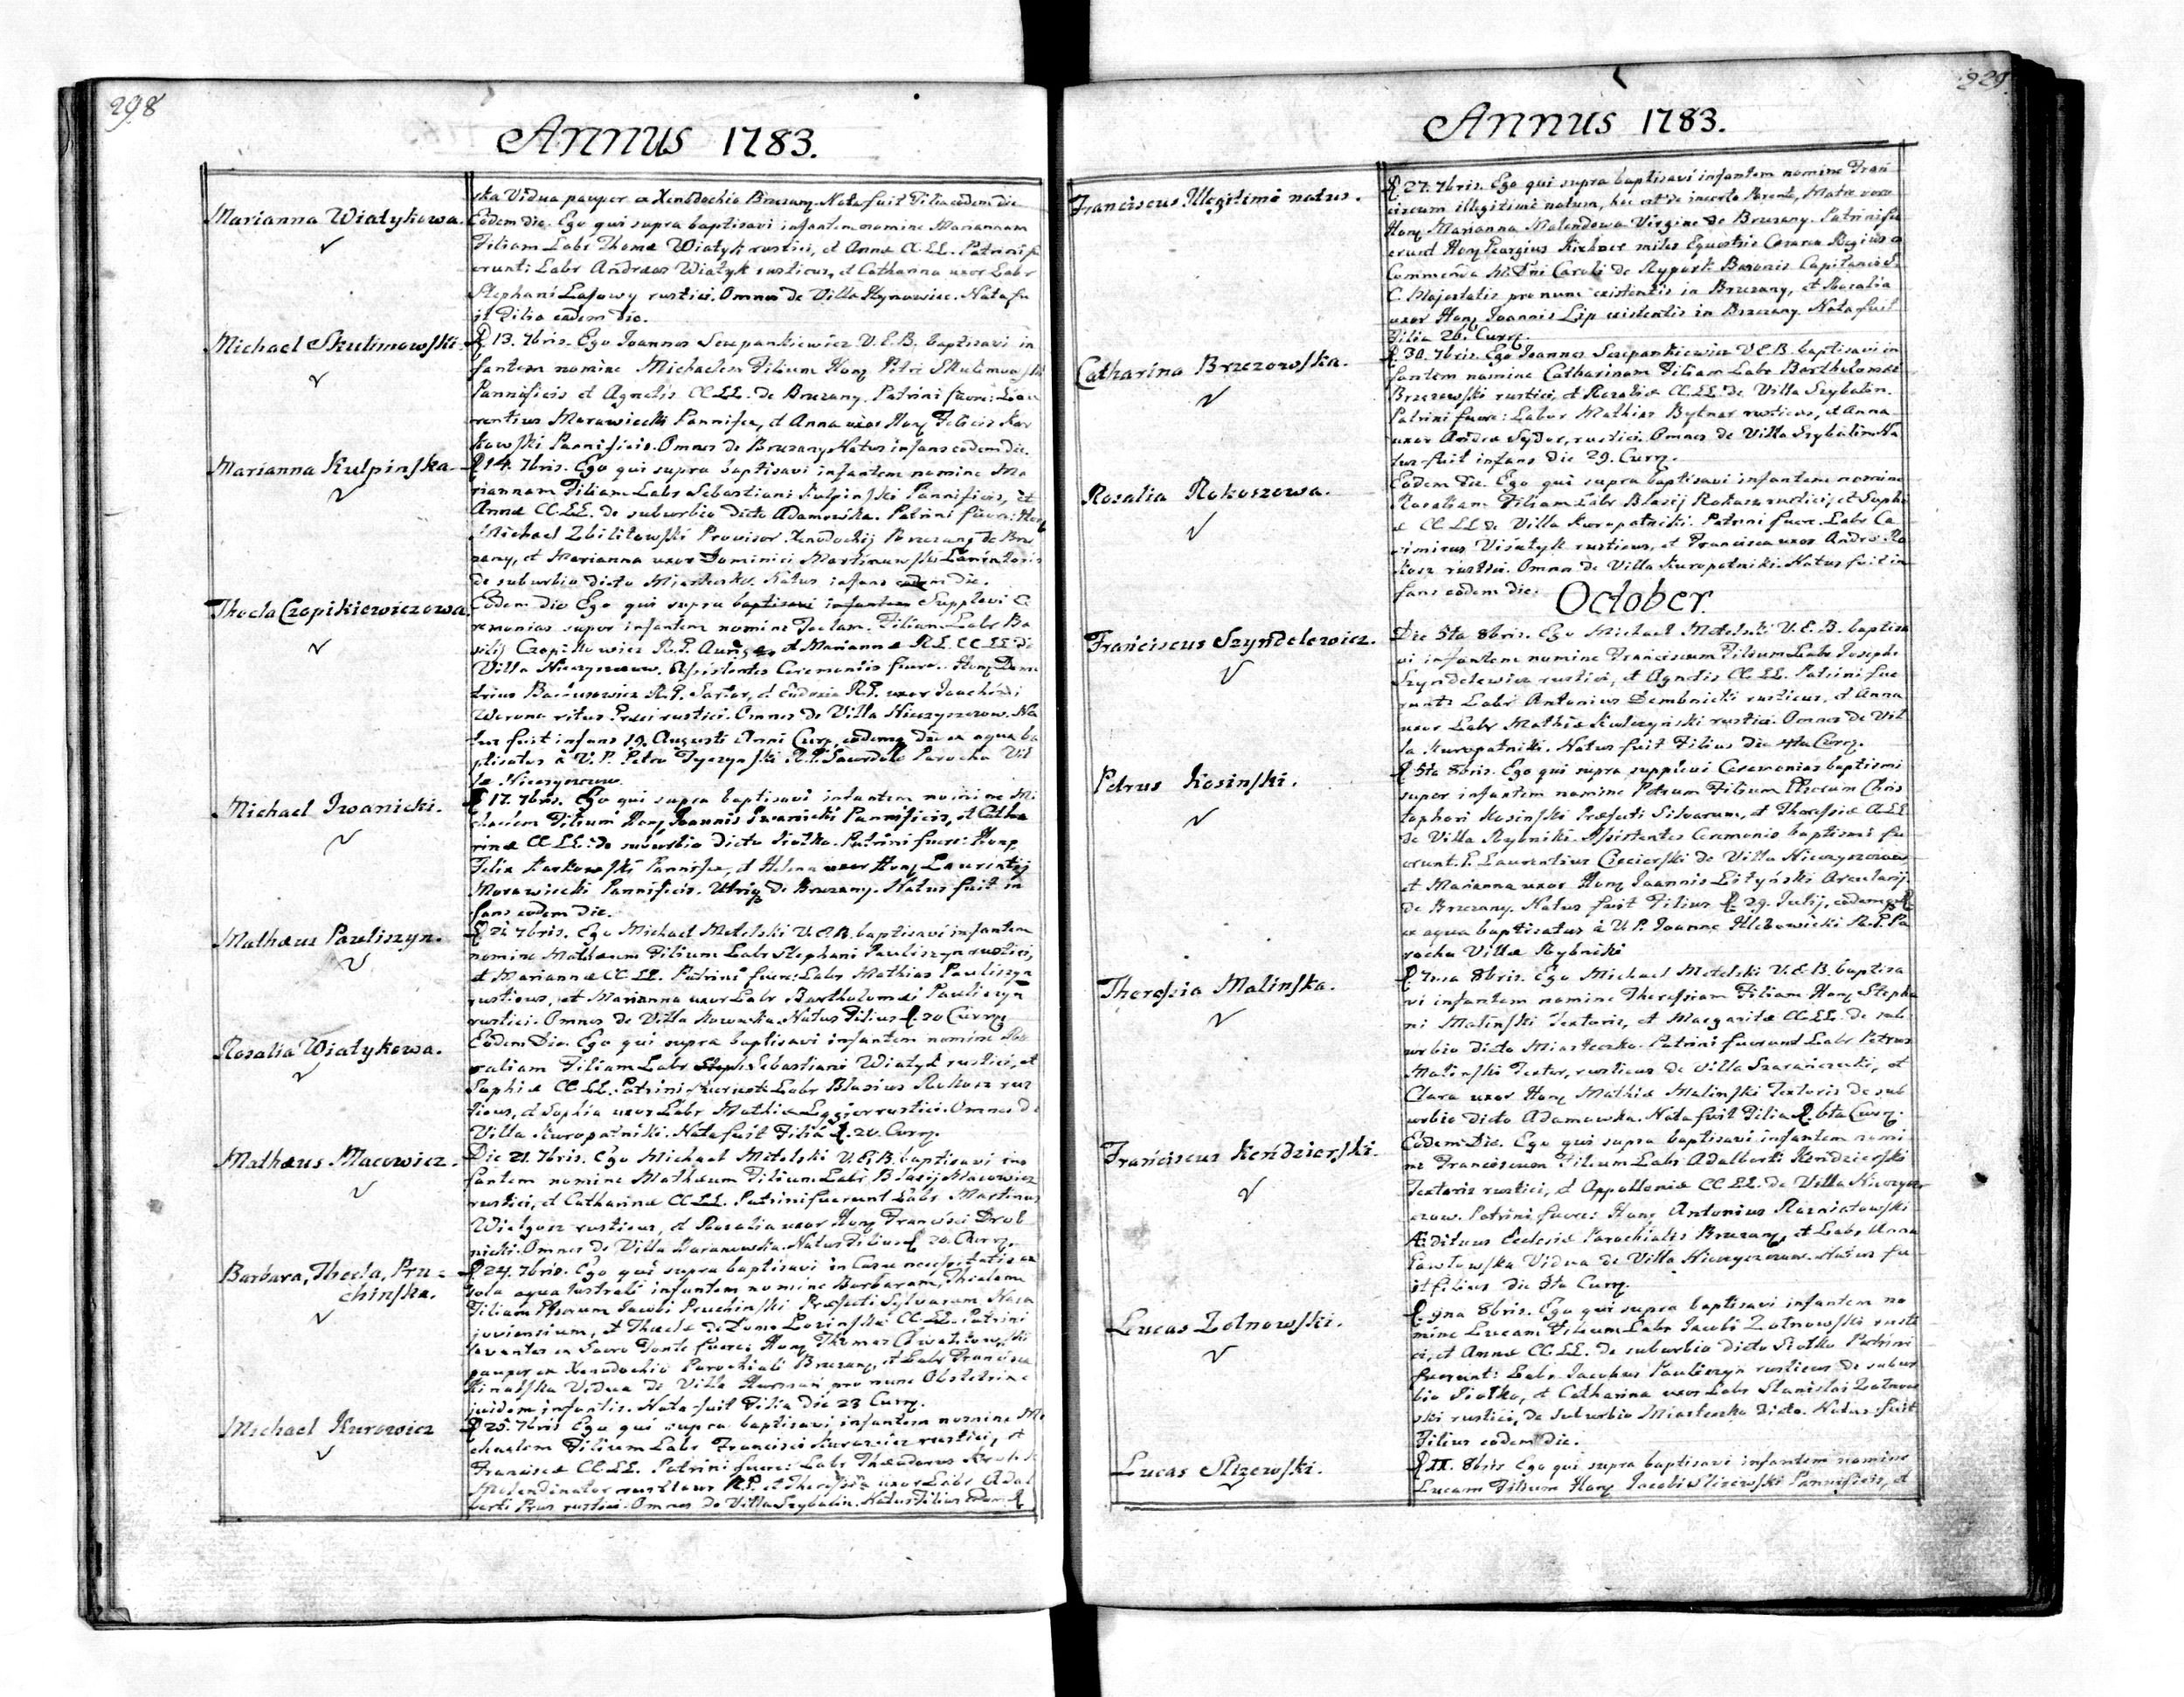 298
Annus 1783.
ska Vidua pauper ex Xenodochio Brzezan. Nata fuit Filia eodem die
Marianna Wiatykowa.
Eodem die. Ego qui supra baptisavi infantem nomine Mariannam
Filiam Labr Thomæ Wiatyk rustici, et Annæ CC.LL. Patrini fu
erunt: Labr Andreas Wiatyk rusticus, et Catharina uxor Labr
Stephani Lasowy rustici. Omnes de Villa Hynowice. Nata fu
it Filia eadem die.
Michael Skulimowski.
13. 7bris. Ego Joannes Szczepankiewicz V.E.B. baptisavi in
fantem nomine Michaelem Filium Hon Petri Skulimowski
Pannificis et Agnetis CC.LL. de Brzezany. Patrini fuere: Lau
rentius Morawiecki Pannifex, et Anna uxor Hon Felicis Kar
kowski Pannificis. Omnes de Brzezany. Natus infans eodem die.
Marianna Kulpinska
14. 7bris. Ego qui supra baptisavi infantem nomine Ma
riannam Filiam Labr Sebastiani Kulpinski Pannificis, et
Annæ CC.LL. de suburbio dicto Adamowska. Patrini fuere: Hon
Michael Zbilitowski Provisor Xenodochij Brzezany de Brze
zany, et Marianna uxor Dominici Martinowski
de suburbio dicto Miasteczko. Natus infans eodem die.
Thecla Czopikiewiczowa.
Eodem die Ego qui supra baptisavi infantem Supplevi Ce
remonias super infantem nomine Teclam. Filiam Labr Ba
silij Czopikowicz R.G. et Mariannæ R.L. CC.LL. de
Villa Nieczyszczow. Assistentes Ceremoniis fuere. Hon Deme
trius R.G. Sartor, et Eudoxia R.G. uxor Joachimi
Werona ritus Græci rustici. Omnes de Villa Nieczyszczow. Na
tus fuit infans 19. Augusti Anni Curr, eodemq die ex aqua ba
ptisatus à V.P. Petro Tyczynski R.G. Sacerdote Parocho Vil
læ Nieczyszczow.
Michael Iwanicki.
17. 7bris. Ego qui supra baptisavi infantem nomine Mi
chaelem Filium Hon Joannis Iwanicki Pannificis, et Catha
rinæ CC.LL. de suburbio dicto Siołko. Patrini fuere: Hon
Felix Karkowski Pannifex, et Helena uxor Hon Laurentij
Morawiecki Pannificis. Utriq de Brzezany. Natus fuit in
fans eodem die.
Mathæus Pauliszyn.
21 7bris. Ego Michael Metelski V.E.B. baptisavi infantem
nomine Mathæum Filium Labr Stephani Pauliszyn rustici,
et Mariannæ CC.LL. Patrini fuere: Labr Mathias Pauliszyn
rusticus, et Marianna uxor Labr Bartholomæi Pauliszyn
rustici. Omnes de Villa Natus Filius 20 Curr
Rosalia Wiatykowa.
Eodem Die. Ego qui supra baptisavi infantem nomine Ro
saliam Filiam Labr Steph Sebastiani Wiatyk rustici, et
Sophiæ CC.LL. Patrini fuerunt: Labr Blasius Rokosz rus
ticus, et Sophia uxor Labr Mathiæ rustici. Omnes de
Villa Kuropatniki. Nata fuit Filia 20. Curr.
Mathæus Macowicz.
Die 21. 7bris. Ego Michael Metelski V.E.B. baptisavi in
fantem nomine Mathæum Filium Labr Blasij Macowicz
rustici, et Catharinæ CC.LL. Patrini fuerunt Labr Martinus
Wielgosz rusticus, et Rosalia uxor Hon Francisci Drob
nicki. Omnes de Villa Natus Filius 20. Curr.
Barbara, Thecla, Pru=
chinska.
24. 7bris. Ego qui supra baptisavi in Casu necessitatis ex
sola aqua lustrali infantem nomine Barbaram, Theclam
Filiam Jacobi Pruchinski Præfecti Sylvarum
et Theclæ de Domo Lozinska CC.LL. Patrini
levantes ex Sacro Fonte fuere: Hon Thomas
pauper ex Xenodochio Parochiali Brzezany, et Labr Francisca
Vidua de Villa pro nunc Obstetrix
infantis. Nata fuit Filia die 23 Curr.
Michael Kurowicz
25. 7bris Ego qui supra baptisavi infantem nomine Mi
chaelem Filium Labr Francisci Kurowicz rustici, et
Franciscæ CC.LL. Patrini fuere: Labr Theodorus
Molendinator rusticus R.G. et Theressia uxor Labr Adal
berti Prus rustici. Omnes de Villa Szybalin. Natus Filius eodem
Annus 1783.
Franciscus Illegitimè natus.
27. 7bris. Ego qui supra baptisavi infantem nomine Fran
ciscum illegitimè natum, hoc est de incerto Parente, Matre vero
Hon Marianna Malendowa Virgine de Brzezany. Patrini fu
erunt Hon Georgius Kirkner miles Equestris Cæsareo Regius
Commenda M. Dni Caroli de Baronis Capitanei S.
C. Majestatis pro nunc existentis in Brzezany, et Rosalia
uxor Hon Joannis Lip existentis in Brzezany. Nata fuit
Filia 26. Curr.
Catharina Brzezowska.
30. 7bris. Ego Joannes Szczepankiewicz V.E.B. baptisavi in
fantem nomine Catharinam Filiam Labr Bartholomæi
Brzezowski rustici, et Rosaliæ CC.LL. de Villa Szybalin.
Patrini fuere: Labor Mathias Bytnar rusticus, et Anna
uxor Andreæ Sydor, rustici. Omnes de Villa Szybalin Na
tus fuit infans die 29. Curr.
Rosalia Rokoszowa.
Eodem die. Ego qui supra baptisavi infantem nomine
Rosaliam Filiam Labr Blasij Rokosz rustici, et Sophi
æ CC.LL. de Villa Kuropatniki. Patrini fuere Labr Ca
simirus Wiatyk rusticus, et Francisca uxor Andreæ Ro
kosz rustici. Omnes de Villa Kuropatniki. Natus fuit in
fans eodem die.
October.
Franciscus Szyndelewicz.
Die 5ta 8bris. Ego Michael Metelski V.E.B. baptisa
vi infantem nomine Franciscum Filium Labr Josephi
Szyndelewicz rustici, et Agnetis CC.LL. Patrini fue
runt: Labr Antonius Dembnicki rusticus, et Anna
uxor Labr Mathiæ rustici. Omnes de Vil
la Kuropatniki. Natus fuit Filius die 4ta Curr.
Petrus Kosinski.
5ta 8bris. Ego qui supra supplevi Ceremonias baptismi
super infantem nomine Petrum Filium Chris
tophori Kosinski Præfecti Silvarum, et Theressiæ CC.LL.
de Villa Rybniki. Assistentes Ceremoniis baptismi fu
erunt. Laurentius Ciecierski de Villa Nieczyszczow
et Marianna uxor Hon Joannis Lityński Arcularij
de Brzezany. Natus fuit Filius 29. Julij, eodemq
ex aqua baptisatus à V.P. Joanne Hlebowicki R.G. Pa
rocho Villæ Rybniki
Theressia Malinska.
7ma 8bris. Ego Michael Metelski V.E.B. baptisa
vi infantem nomine Theressiam Filiam Hon Stepha
ni Malinski Textoris, et Margaritæ CC.LL. de sub
urbio dicto Miasteczko. Patrini fuerunt Labr Petrus
Malinski Textor, rusticus de Villa Szaranczuki, et
Clara uxor Hon Mathiæ Malinski Textoris de sub
urbio dicto Adamowska. Nata fuit Filia 6ta Curr.
Franciscus Kendzierski.
Eodem Die. Ego qui supra baptisavi infantem nomi
ne Franciscum Filium Labr Adalberti Kendzierski
Textoris rustici, et Appolloniæ CC.LL. de Villa Nieczysz
czow. Patrini fuere: Hon Antonius Rozniatowski
Ædituus Ecclesiæ Parochialis Brzezan, et Labr Anna
Pawłowska Vidua de Villa Nieczyszczow. Natus fu
it filius die 5ta Curr.
Lucas Zotnowski.
9na 8bris. Ego qui supra baptisavi infantem no
mine Lucam Filium Labr Jacobi Zotnowski rusti
ci, et Annæ CC.LL. de suburbio dicto Siołko Patrini
fuerunt: Labr Jacobus Pauliszyn rusticus de subur
bio Siołko, et Catharina uxor Labr Stanislai Zotnow
ski rustici, de suburbio Miasteczko dicto. Natus fuit
Filius eodem die.
Lucas Slizewski.
11. 8bris Ego qui supra baptisavi infantem nomine
Lucam Filium Hon Jacobi Slizewski Pannificis, et